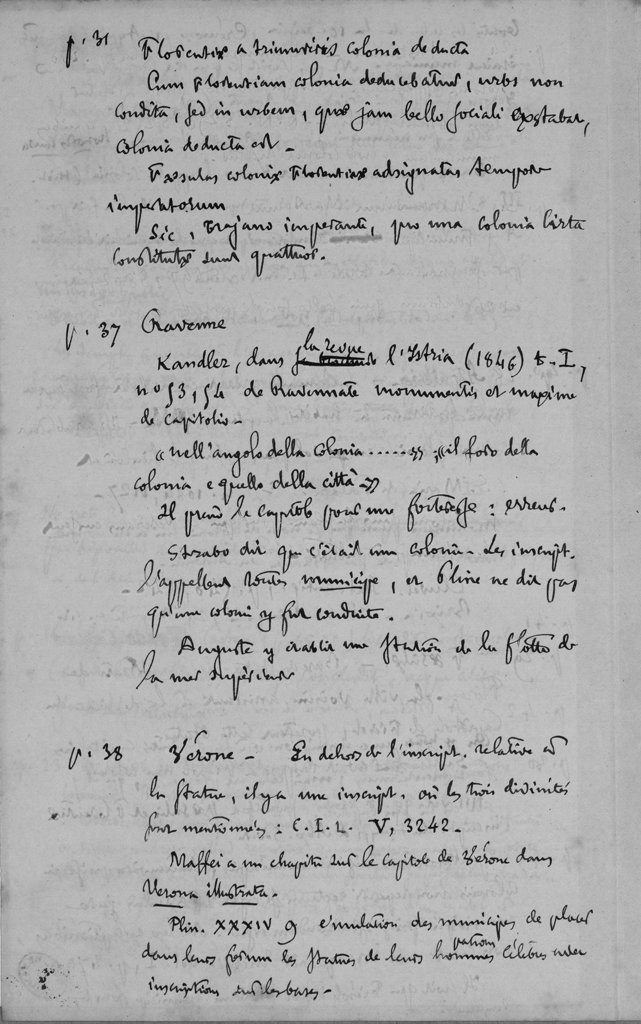 p. 31 Florentiæ a triumviris colonia deducta
Cum Florentiam colonia deducebatur, urbs non
condita, sed in urbem, quæ jam bello sociali exstabat,
colonia deducta est -
Fæsulas coloniæ Florentiæ adsignatas tempore
imperatorum
Sic, Trajano imperante, pro una colonia
constitutæ sunt quattuor.
p. 37 Ravenne
Kandler, dans la revue l'Istria (1846) t. I,
no 53, 54 de Ravennate monumentis et maxime
de Capitolio -
« nell'angolo della Colonia ..... » ; « il foro della
colonia e quello della città »
Il prend le Capitole pour une forteresse : erreur.
Strabo dit que c'était une colonie - Les inscript.
l'appellent toutes municipe, et Pline ne dit pas
qu'une colonie y fut conduite.
Auguste y établit une station de la flotte de
la mer supérieure
p. 38 Vérone - En dehors de l'inscript. relative à
la statue, il y a une inscript. où les trois divinités
sont mentionnées : C.I.L. V, 3242 -
Maffei a un chapitre sur le capitole de Vérone dans
Verona illustrata.
Plin. XXXIV 9 emulation des municipes de placer
patrons
dans leurs forum les statues de leurs hommes célèbres avec
inscriptions sur les bases -